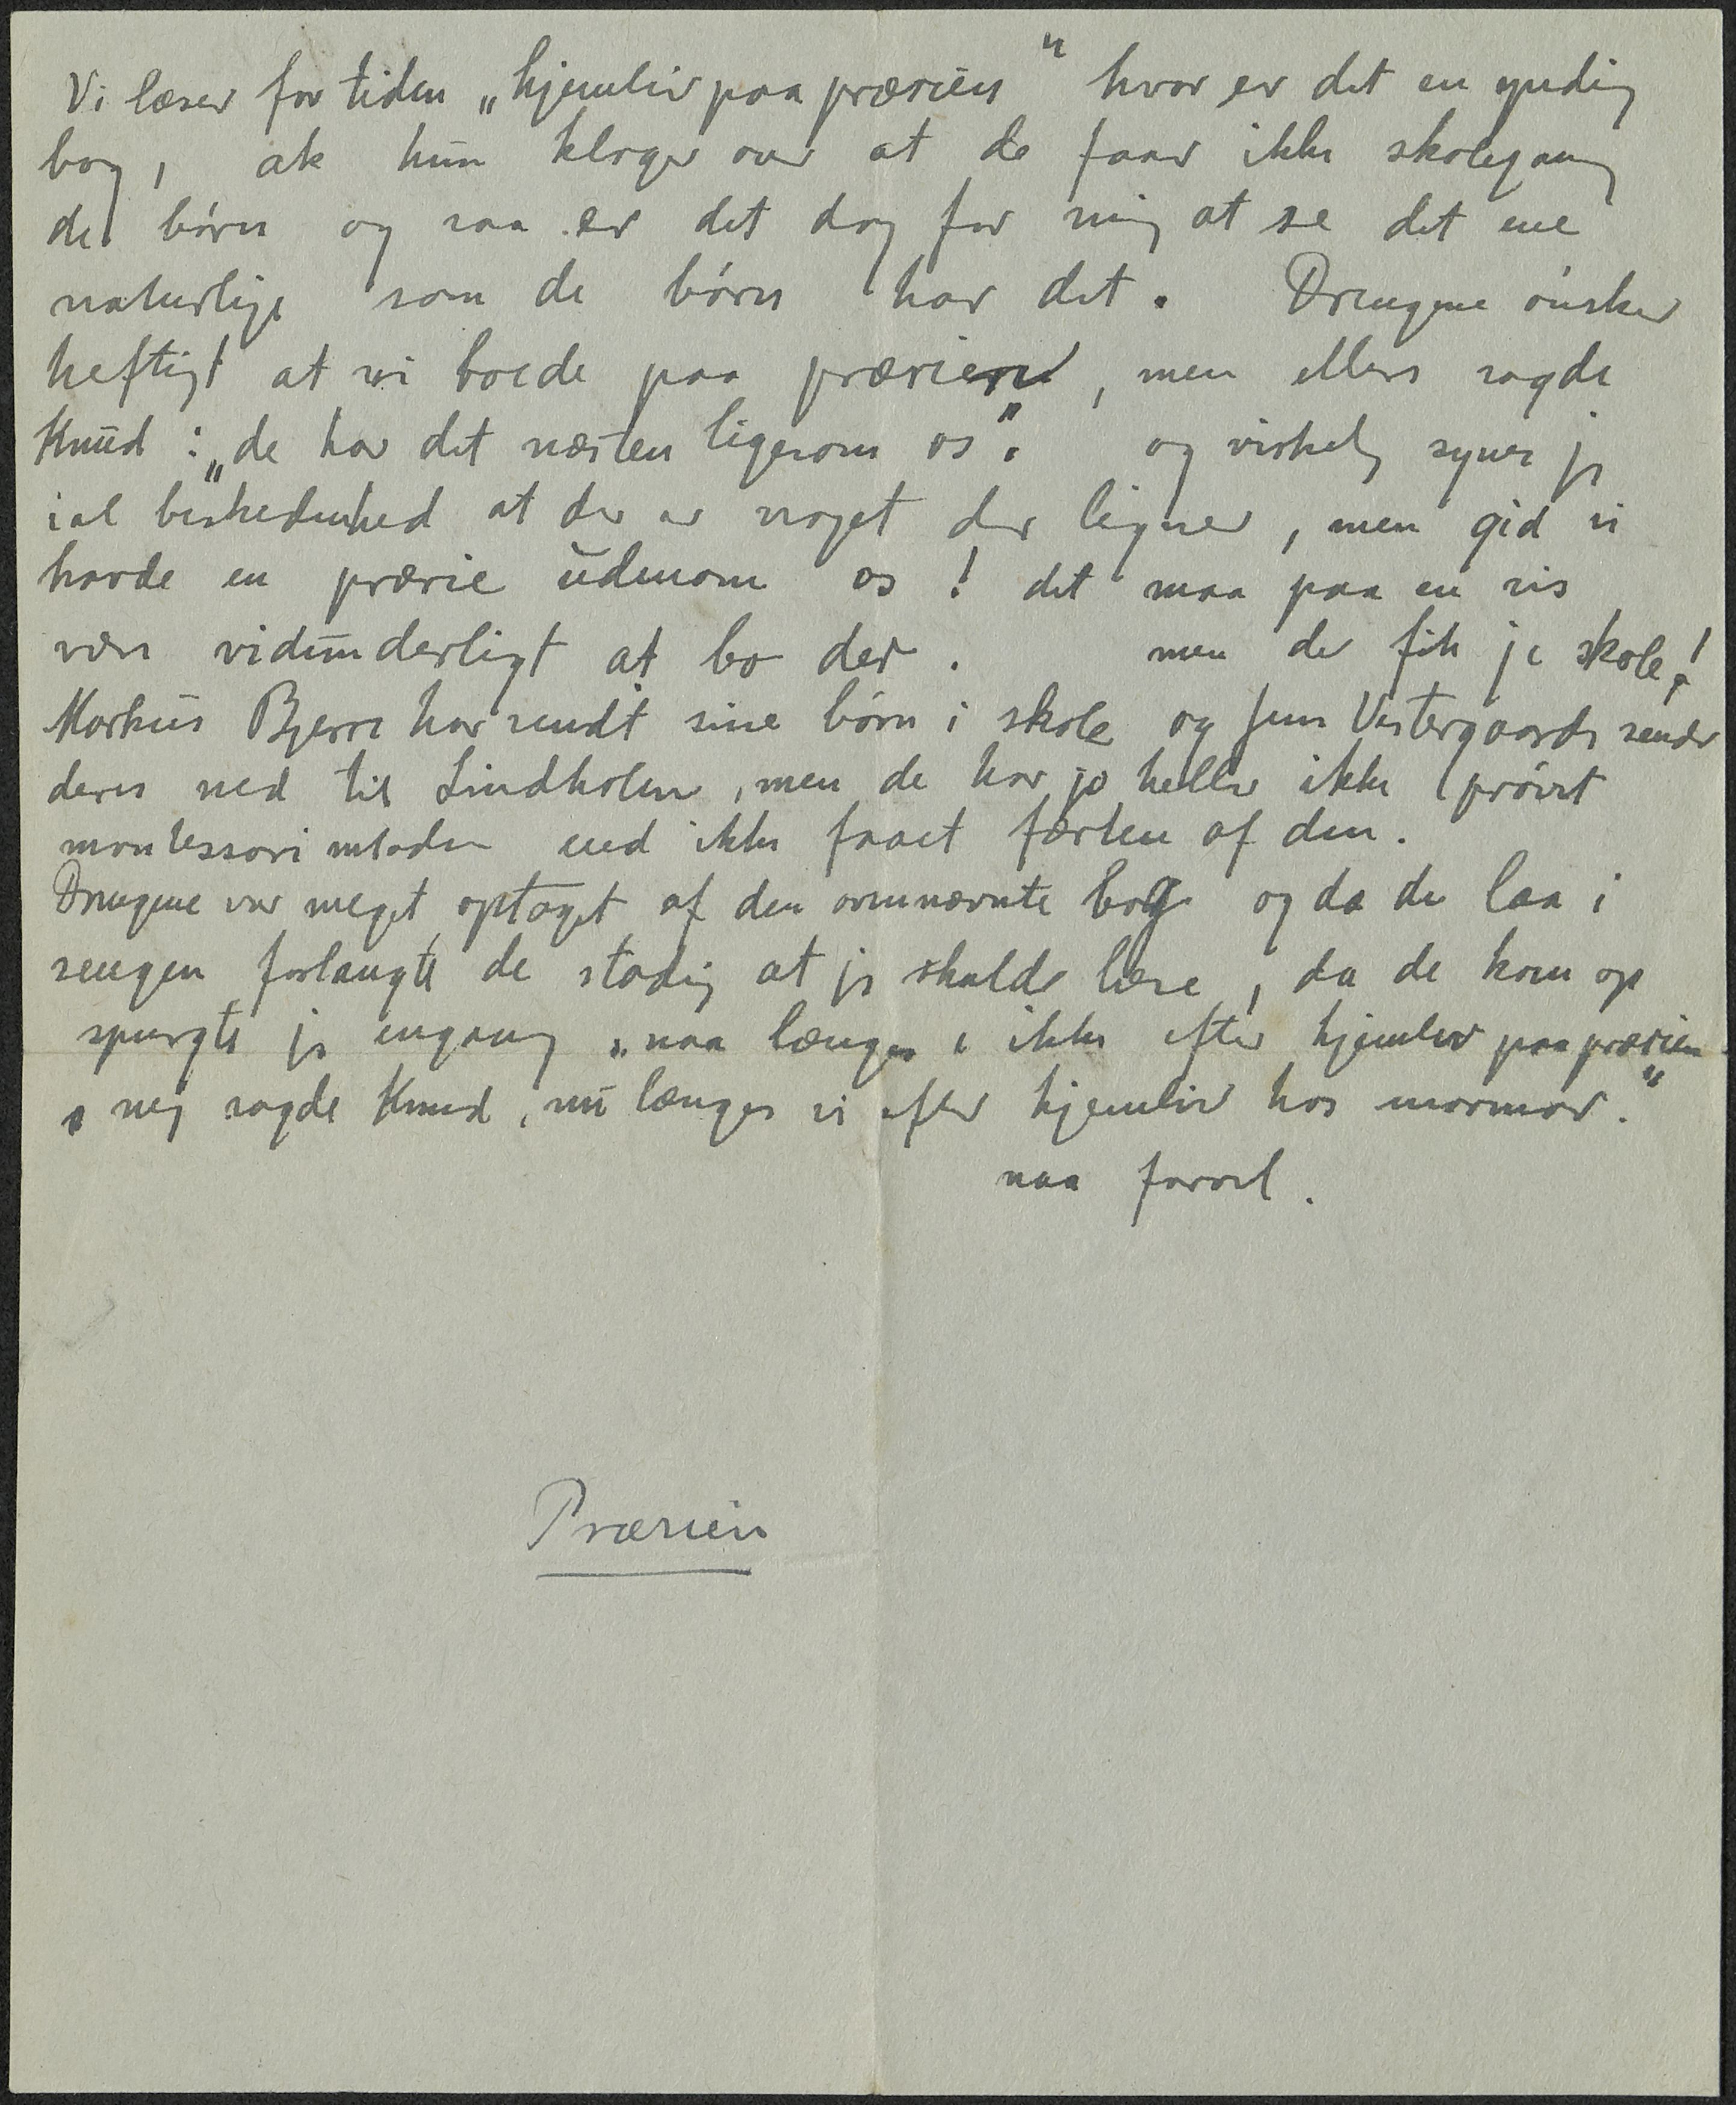 Vi læser for tiden „hjemliv paa prærien" hvor er det en yndig
bog, ak hun klager over at de faar ikke skolegang
de børn og saa er det dog for mig at se det ene
naturlige som de børn har det. Drengene ønsker
heftigt at vi boede paa prærien, men ellers sagde
Knud: „de har det næsten ligesom os". og virkelig synes jeg
i al beskedenhed at der er noget der ligner, men gid vi
havde en prærie udenom os! det maa paa en vis
være vidunderligt at bo der. men de fik jo skole!
Markus Bjerre har sendt sine børn i skole og Jens Vestergaards sender
deres ned til Lindholm, men de har jo heller ikke prøvet
montessori metoden end ikke faaet færten af den.
Drengene var meget optaget af den ovennævnte bog og da de laa i
sengen forlangte de stadig at jeg skulde læse, da de kom op
spurgte jeg engang „naa længes i ikke efter hjemliv paa prærien
nej sagde Knud, nu længes vi efter hjemliv hos mormor."
naa farvel.
Prærien